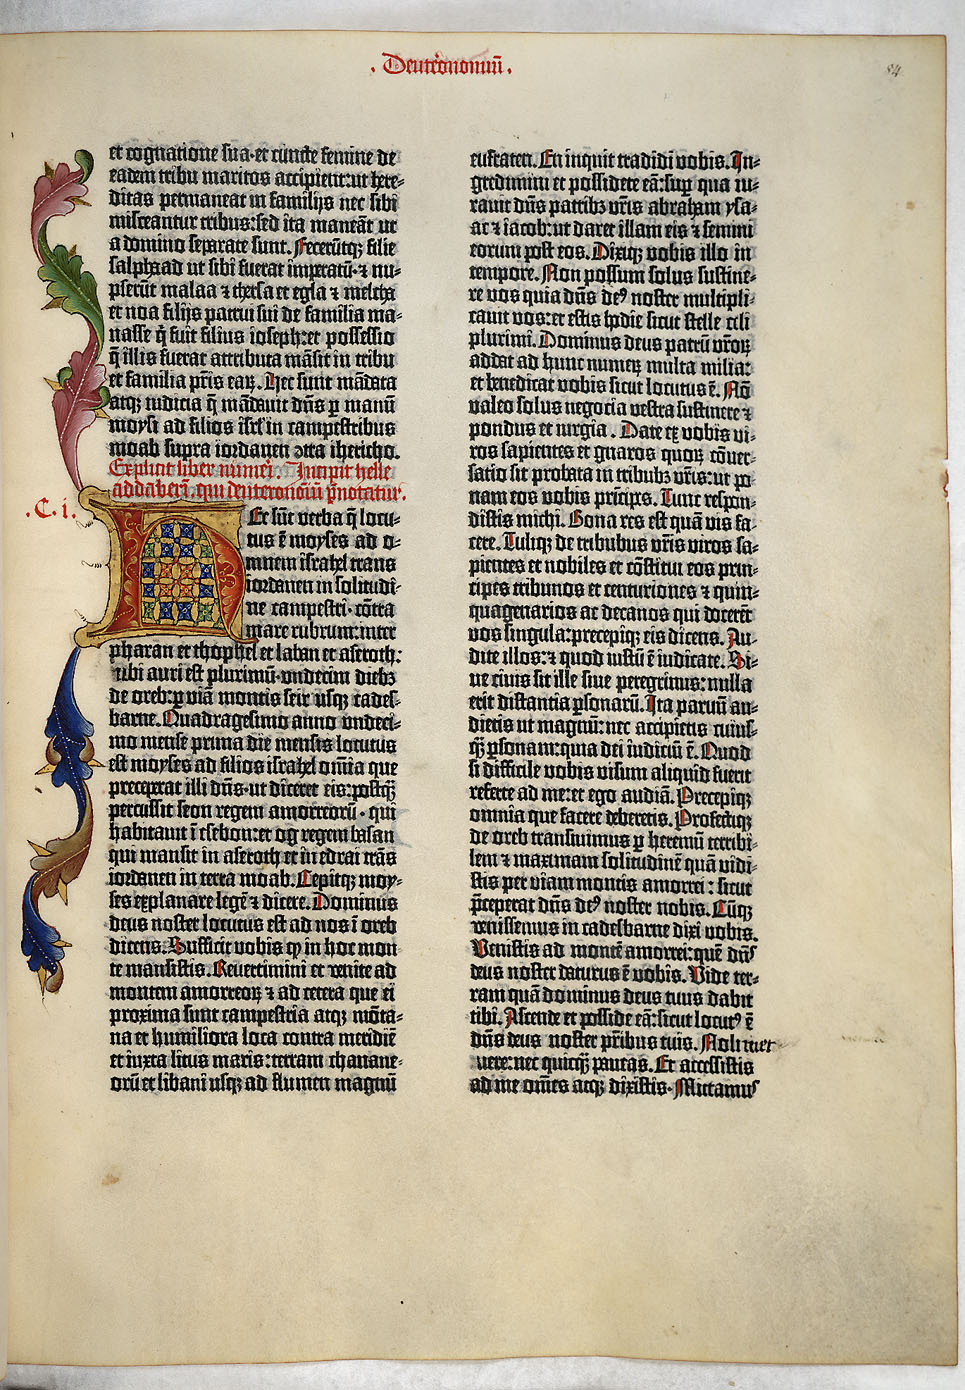 . Deuteronomiū .
84
et cognatione sua·et cuncte femine de
eadem tribu maritos accipient:ut here-
ditas permaneat in familijs nec sibi
misceantur tribus:sed ita maneāt ut
a domino separate sunt. Fecerūtqꝫ filie
salphaad ut sibi fuerat imperatū·⁊ nu-
pserūt malaa ⁊ thersa et egla ⁊ melcha
et noa filijs patrui sui de familia ma-
nasse q̇ fuit filius ioseph:et possessio
q̄ illis fuerat attributa māsit in tribu
et familia pr̄is eaꝝ. Hec sunt mādata
atqꝫ iudicia q̄ mādauit dn̄s ꝑ manū
moysi ad filios isrł in campestribus
moab supra iordanen ↄtra ihericho.
Explicit liber numeri. Incipit helle
addabarim, qui deuteronomiū p̄notatur.
.C. i.
HEc sūt verba q̄ locu-
tus ē moyses ad o-
mnem israhel trans
iordanen in solitudi-
ne campestri·cōtra
mare rubrum:inter
pharan et thophel et laban et aseroth:
ubi auri est plurimū·vndecim diebꝫ
de oreb:ꝑ viā montis seir usqꝫ cades-
barne. Quadragesimo anno vndeci-
mo mense prima die mensis locutus
est moyses ad filios israhel om̄ia que
preceperat illi dn̄s·ut diceret eis:postq̄ꝫ
percussit seon regem amorreorū·qui
habitauit ī esebon:et og regem basan
qui mansit in aseroth et in edrai trās
iordanen in terra moab. Cepitqꝫ moy-
ses explanare legē ⁊ dicere. Dominus
deus noster locutus est ad nos ī oreb
dicens. Sufficit vobis ꝙ in hoc mon
te mansistis. Reuertimini et venite ad
montem amorreoꝝ ⁊ ad cetera que ei
proxima sunt campestria atqꝫ mōta-
na et humiliora loca contra meridiē
et iuxta litus maris:terram chanane-
orū et libani usqꝫ ad flumen magnū
eufraten. En inquit tradidi vobis. In-
gredimini et possidete eā:suꝑ qua iu-
rauit dn̄s patribꝫ vr̄is abraham ysa-
ac ⁊ iacob:ut daret illam eis ⁊ semini
eorum post eos. Dixiqꝫ vobis illo in
tempore. Non possum solus sustine-
re vos quia dn̄s deꝰ noster multipli-
cauit vos:et estis hodie sicut stelle celi
plurimi. Dominus deus patrū vr̄oꝝ
addat ad hunc numeꝝ multa milia:
et benedicat vobis sicut locutus ē. Nō
valeo solus negocia vestra sustinere ⁊
pondus et iurgia. Date eꝝ vobis vi-
ros sapientes et gnaros quoꝝ cōuer-
satio sit probata in tribubꝫ vr̄is:ut po-
nam eos vobis prīcipes. Tunc respon-
distis michi. Bona res est quā vis fa-
cere. Tuliqꝫ de tribubus vr̄is viros sa-
pientes et nobiles et cōstitui eos prin-
cipes tribunos et centuriones ⁊ quin-
quagenarios ac decanos qui docerēt
vos singula:precepiqꝫ eis dicens. Au-
dite illos:⁊ quod iustū ē iudicate. Si-
ue ciuis sit ille siue peregrinus:nulla
erit distantia ꝑsonarū. Ita paruū au-
dietis ut magnū:nec accipietis cuius-
q̄ꝫ ꝑsonam:quia dei iudiciū ē. Quod
si difficile vobis visum aliquid fuerit
referte ad me:et ego audiā. Precepiqꝫ
omnia que facere deberetis. Profectiqꝫ
de oreb transiuimus ꝑ heremū terribi-
lem ⁊ maximam solitudinē quā vidi-
stis per viam montis amorrei:sicut
p̄ceperat dn̄s deꝰ noster nobis. Cūqꝫ
venissemus in cadesbarne dixi vobis.
Venistis ad montē amorrei:quē dn̄s
deus noster daturus ē vobis. Vide ter-
ram quā dominus deus tuus dabit
tibi. Ascende et posside eā:sicut locutꝰ ē
dn̄s deus noster pr̄ibus tuis. Noli tiuer
uere:nec quicq̄ꝫ paueas. Et accessistis
ad me om̄es atqꝫ dixistis·Mittamus